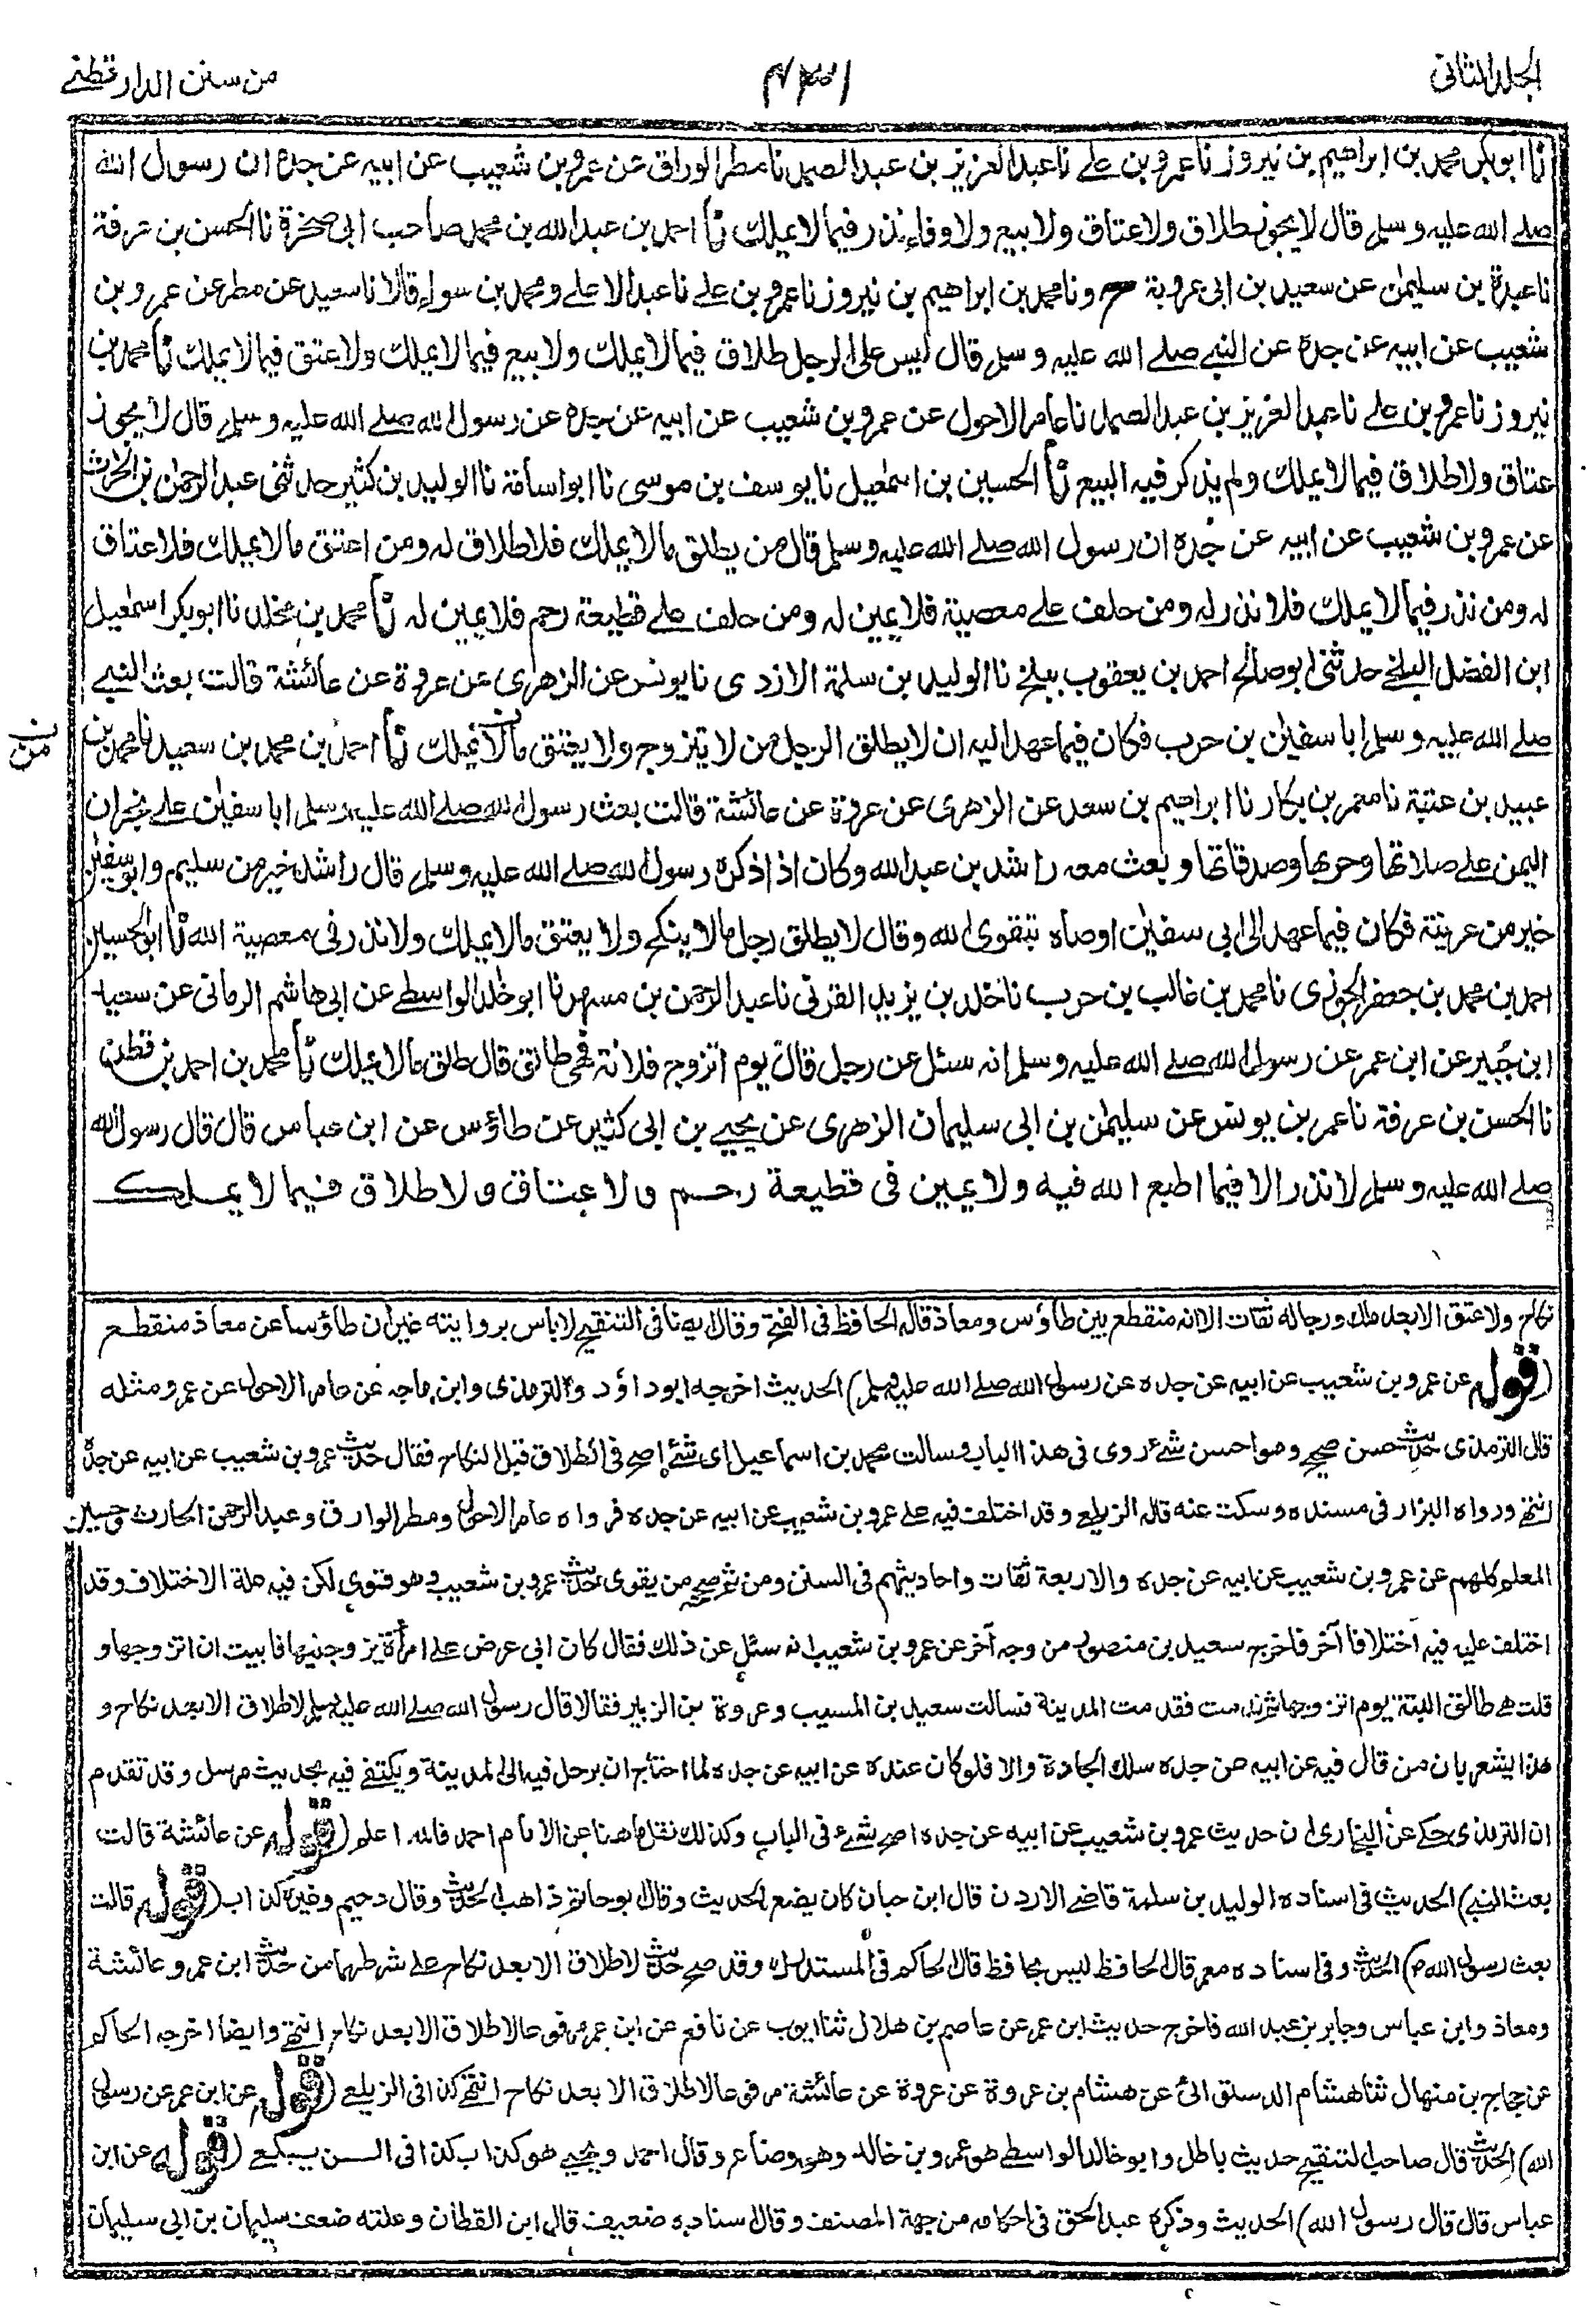 الجلد الثاني
٤٣١
من سنن الدارقطنے
نا ابو بكر محمد بن ابراهيم بن نيروز نا عمرو بن علے نا عبد العزيز بن عبد الصمد نا مطر الوراق عن عمرو بن شعيب عن ابيه عن جده ان رسول الله
صلے الله عليه وسلم قال لا يجوز طلاق ولا عتاق ولا بيع ولا وفاء نذر فيما لا يملك نا احمد بن عبد الله بن محمد صاحب ابى صخرة نا الحسن بن عرفة
نا عبدة بن سليمن عن سعيد بن ابى عروبة ح ونا محمد بن ابراهيم بن نيروز نا عمرو بن علے نا عبد الاعلے ومحمد بن سواء قالا نا سعيد عن مطر عن عمرو بن
شعيب عن ابيه عن جده عن النبے صلے الله عليه وسلم قال ليس على الرجل طلاق فيما لا يملك ولا بيع فيما لا يملك ولا عتق فيما لا يملك نا محمد بن
نيروز نا عمرو بن علے نا عبد العزيز بن عبد الصمد نا عامر الاحول عن عمرو بن شعيب عن ابيه عن جده عن رسول الله صلے الله عليه وسلم قال لا يجوز
عتاق ولا طلاق فيما لا يملك ولم يذكر فيه البيع نا الحسين بن اسمعيل نا يوسف بن موسى نا ابو اسامة نا الوليد بن كثير حدثنى عبد الرحمن بن الحارث
عن عمرو بن شعيب عن ابيه عن جده ان رسول الله صلے الله عليه وسلم قال من يطلق ما لا يملك فلا طلاق له ومن اعتق ما لا يملك فلا عتاق
له ومن نذر فيما لا يملك فلا نذر له ومن حلف علے معصية فلا يمين له ومن حلف علے قطيعة رحم فلا يمين له نا محمد بن مخلد نا ابو بكر اسمعيل
ابن الفضل البلخے حدثنى ابو صالح احمد بن يعقوب ببلخ نا الوليد بن سلمة الازدى نا يونس عن الزهرى عن عروة عن عائشة قالت بعث النبے
صلے الله عليه وسلم ابا سفيٰن بن حرب فكان فيما عهد اليه ان لا يطلق الرجل من لا يتزوج ولا يعتق ما لا يملك نا احمد بن محمد بن سعيد نا محمد بن
ن من
عبيد بن عتبة نا معمر بن بكار نا ابراهيم بن سعد عن الزهرى عن عروة عن عائشة قالت بعث رسول الله صلے الله عليه وسلم ابا سفيٰن علے نجران
اليمن علے صلاتها وحربها وصدقاتها وبعث معه راشد بن عبد الله وكان اذا ذكره رسول الله صلے الله عليه وسلم قال راشد خير من سليم وابو سفيٰن
خير من عرينة فكان فيما عهد الى ابى سفيٰن اوصاه بتقوى الله وقال لا يطلق رجل ما لا ينكح ولا يعتق ما لا يملك ولا نذر فى معصية الله نا ابو الحسين
احمد بن محمد بن جعفر الجوزى نا محمد بن غالب بن حرب نا خلد بن يزيد القرنى نا عبد الرحمن بن مسهر نا ابو خلد الواسطے عن ابى هاشم الرمانى عن سعيد
ابن جُبير عن ابن عمر عن رسول الله صلے الله عليه وسلم انه سئل عن رجل قال يوم اتزوج فلانة فهى طالق قال طلق ما لا يملك نا محمد بن احمد بن قطن
نا الحسن بن عرفة نا عمر بن يونس عن سليمٰن بن ابى سليمان الزهرى عن يحيے بن ابى كثير عن طاؤس عن ابن عباس قال قال رسول الله
صلے الله عليه وسلم لا نذر الا فيما اطيع الله فيه ولا يمين فى قطيعة رحم ولا عتاق ولا طلاق فيما لا يملك
نكاح ولا عتق الا بعد ملك ورجاله ثقات الا انه منقطع بين طاؤس ومعاذ قاله الحافظ فى الفتح وقال ايضا فى التنقيح لا باس بروايته غير ان طاؤسا عن معاذ منقطع
(قوله عن عمرو بن شعيب عن ابيه عن جده عن رسول الله صلے الله عليه وسلم) الحديث اخرجه ابو داؤد والترمذى وابن ماجه عن عامر الاحول عن عمرو مثله
قال الترمذى حديث حسن صحيح وهو احسن شئ روى فى هذا الباب وسالت محمد بن اسماعيل اى شئ اصح فى الطلاق قبل النكاح فقال حديث عمرو بن شعيب عن ابيه عن جده
انتهے ورواه البزار فى مسنده وسكت عنه قاله الزيلعے وقد اختلف فيه علے عمرو بن شعيب عن ابيه عن جده فرواه عامر الاحول ومطر الوراق وعبد الرحمن الحارث وحسين
المعلم كلهم عن عمرو بن شعيب عن ابيه عن جده والاربعة ثقات واحاديثهم فى السنن ومن ثم صححه من يقوى حديث عمرو بن شعيب وهو قتوى لكن فيه علة الاختلاف وقد
اختلف عليه فيه اختلافا آخر فاخرج سعيد بن منصور من وجه آخر عن عمرو بن شعيب انه سئل عن ذلك فقال كان ابى عرض علے امرأة يزوجنيها فابيت ان اتزوجها و
قلت هے طالق البتة يوم اتزوجها ثم ندمت فقدمت المدينة فسالت سعيد بن المسيب وعروة بن الزبير فقالا قال رسول الله صلے الله عليه وسلم لا طلاق الا بعد نكاح و
هذا يشعر بان من قال فيه عن ابيه عن جده سلك الجادة والا فلو كان عنده عن ابيه عن جده لما احتاج ان يرحل فيه الى المدينة ويكتفے فيه بحديث مرسل وقد تقدم
ان الترمذى حكے عن البخارى ان حديث عمرو بن شعيب عن ابيه عن جده اصح شئ فى الباب وكذلك نقل ما هنا عن الامام احمد فالله اعلم (قوله عن عائشة قالت
بعث النبے) الحديث فى اسناده الوليد بن سلمة قاضے الاردن قال ابن حبان كان يضع الحديث وقال ابو حاتم ذاهب الحديث وقال دحيم وغيره كذاب (قوله قالت
بعث رسول الله م) الحديث وفى اسناده معمر قال الحافظ ليس بحافظ قال الحاكم فى المستدرك وقد صح حديث لا طلاق الا بعد نكاح علے شرطهما من حديث ابن عمر وعائشة
ومعاذ وابن عباس وجابر بن عبد الله فاخرج حديث ابن عمر عن عاصم بن هلال ثنا ايوب عن نافع عن ابن عمر مرفوعا لا طلاق الا بعد نكاح انتهے وايضا اخرجه الحاكم
عن حجاج بن منهال ثنا هشام الدستوائى عن هشام بن عروة عن عروة عن عائشة مرفوعا لا طلاق الا بعد نكاح انتهے كذا فى الزيلعے (قوله عن ابن عمر عن رسول
الله) الحديث قال صاحب التنقيح حديث باطل وابو خالد الواسطے هو عمرو بن خالد وهو وضاع وقال احمد ويحيے هو كذاب كذا فى الزيلعے (قوله عن ابن
عباس قال قال رسول الله) الحديث وذكره عبد الحق فى احكامه من جهة المصنف وقال اسناده ضعيف قال ابن القطان وعلته ضعف سليمان بن ابى سليمان